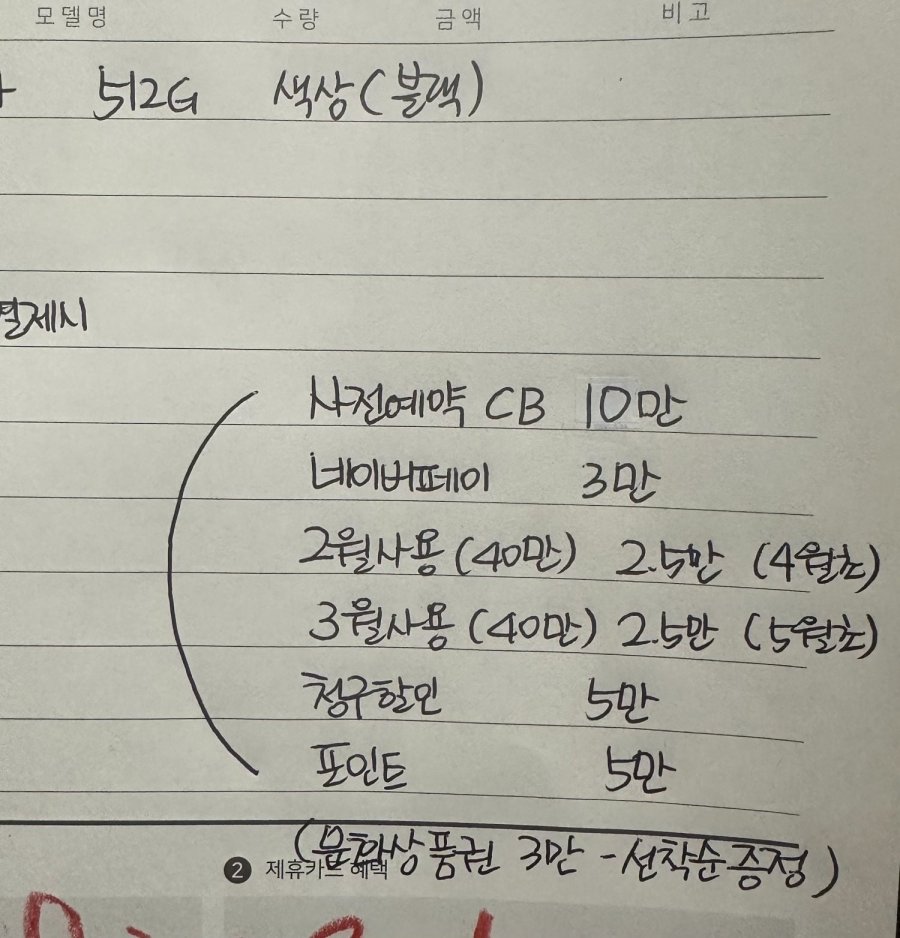 모델명 수량 금액 비고
512G 색상(블랙)
결제시
사전예약 CB 10만
네이버페이 3만
2월사용(40만) 2.5만 (4월초)
3월사용(40만) 2.5만 (5월초)
청구할인 5만
포인트 5만
(문화상품권 3만 - 선착순증정)
2 제휴카드 혜택